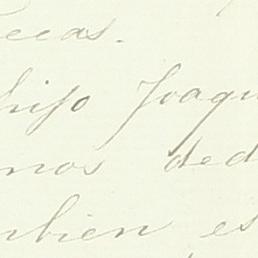 ecas.
hijo Joaqu
nos ded
nbien es